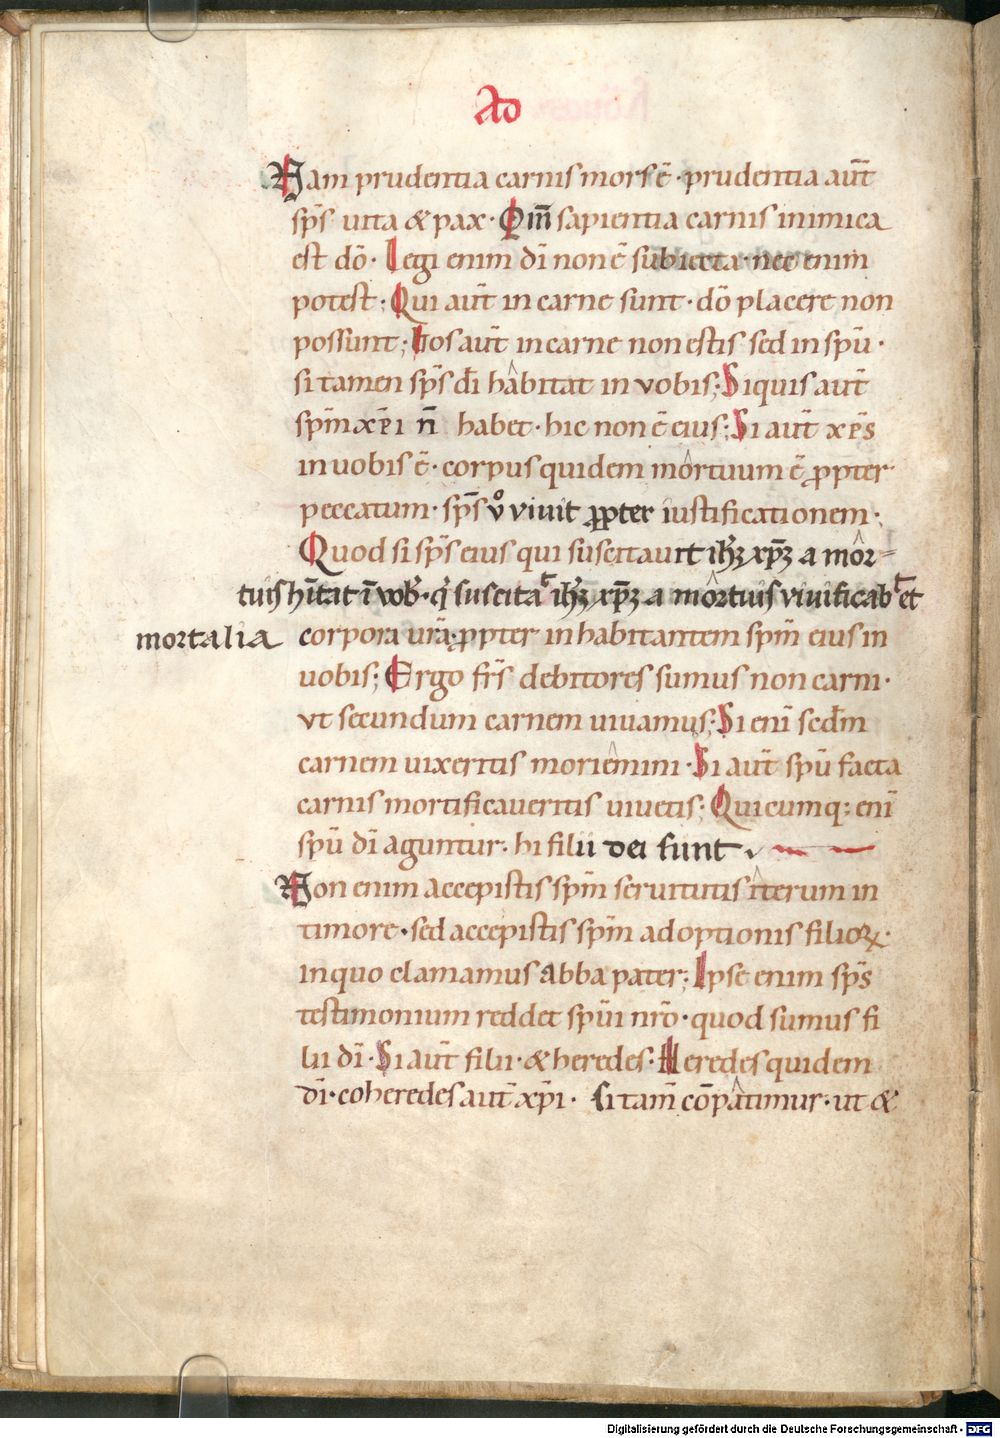 Ad
Nam prudentia carnis mors ē· prudentia aūt
sp̄s uita & pax· Qm̄ sapientia carnis inimica
est dō· Legi enim dī non ē subiecta· nec enim
potest; Qui aūt in carne sunt· dō placere non
possunt; Uos aūt in carne non estis sed in spū·
si tamen sp̄s dī habitat in vobis; Siquis aūt
spm̄ xp̄i n̄ habet· hic non ē eius; Si aūt xp̄s
in uobis ē· corpus quidem mortuum ē ꝓpter
peccatum· sp̄s vº vivit ꝓpter iustificationem·
Quod si sp̄s eius qui suscitauit ih̄ꝫ xp̄ꝫ a mor-
tuis hītat ī vob̄· q suscitat ih̄ꝫ xp̄ꝫ a mortuis viuificabt et
mortalia corpora urā ꝓpter inhabitantem spm̄ eius in
uobis; Ergo fr̄s debitores sumus non carni·
vt secundum carnem uiuamus; Si enī scdm̄
carnem uixeritis moriemini· Si aūt spū facta
carnis mortificaueritis uiuetis; Quicumq; enī
spū dī aguntur· hi filii dei sunt
Non enim accepistis spm̄ seruitutis iterum in
timore· sed accepistis spm̄ adoptionis filioꝝ·
in quo clamamus abba pater; Ipse enim sp̄s
testimonium reddet spūi nrō· quod sumus fi
lii dī· Si aūt filii· & heredes· Heredes quidem
dī· coheredes aut̄ xp̄i· si tam̄ cōpatimur· ut &
Digitalisierung gefördert durch die Deutsche Forschungsgemeinschaft - DFG